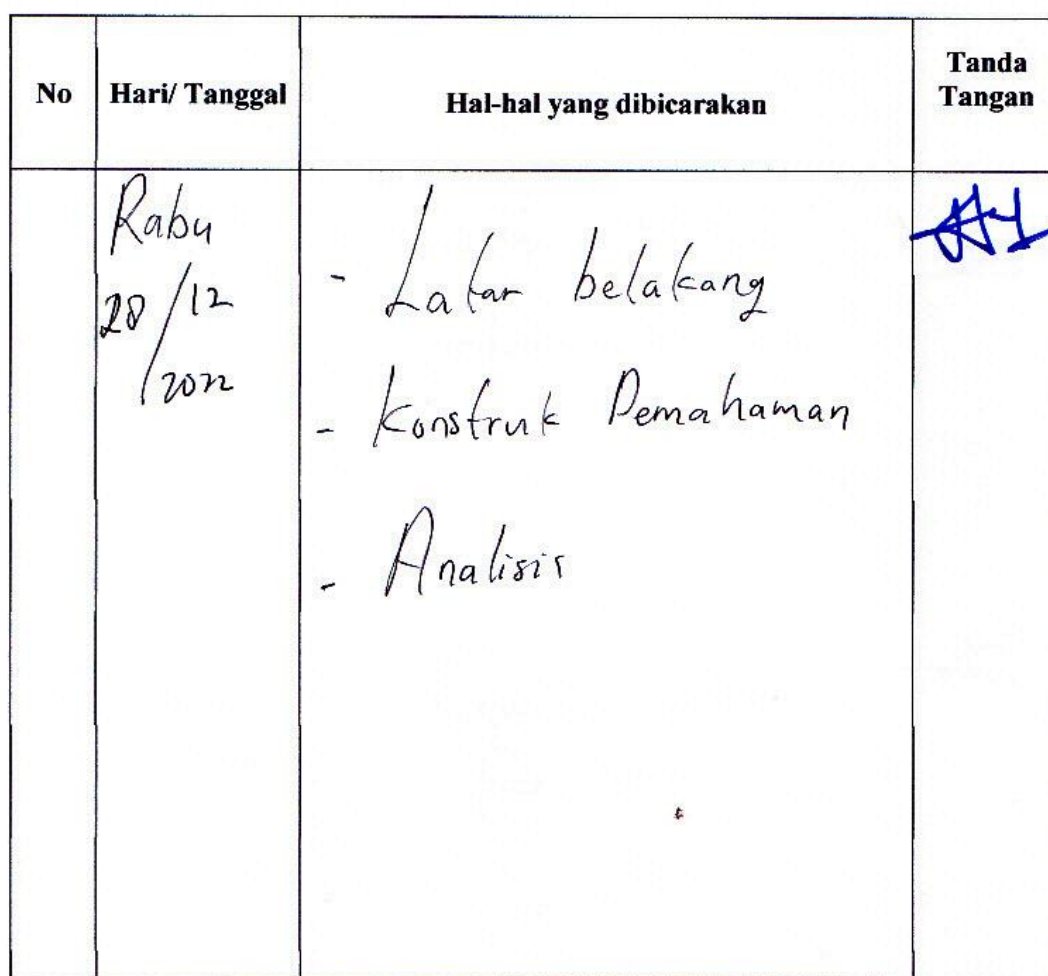 No
Hari/ Tanggal
Hal-hal yang dibicarakan
Tanda
Tangan
Rabu
28/12
/2022
- Latar belakang
- Konstruk Pemahaman
- Analisis